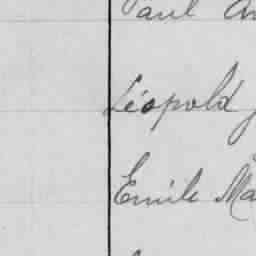 Paul
Léopold
Emile Ma